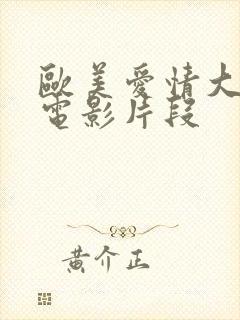 歐美愛情大
電影片段
黃介正